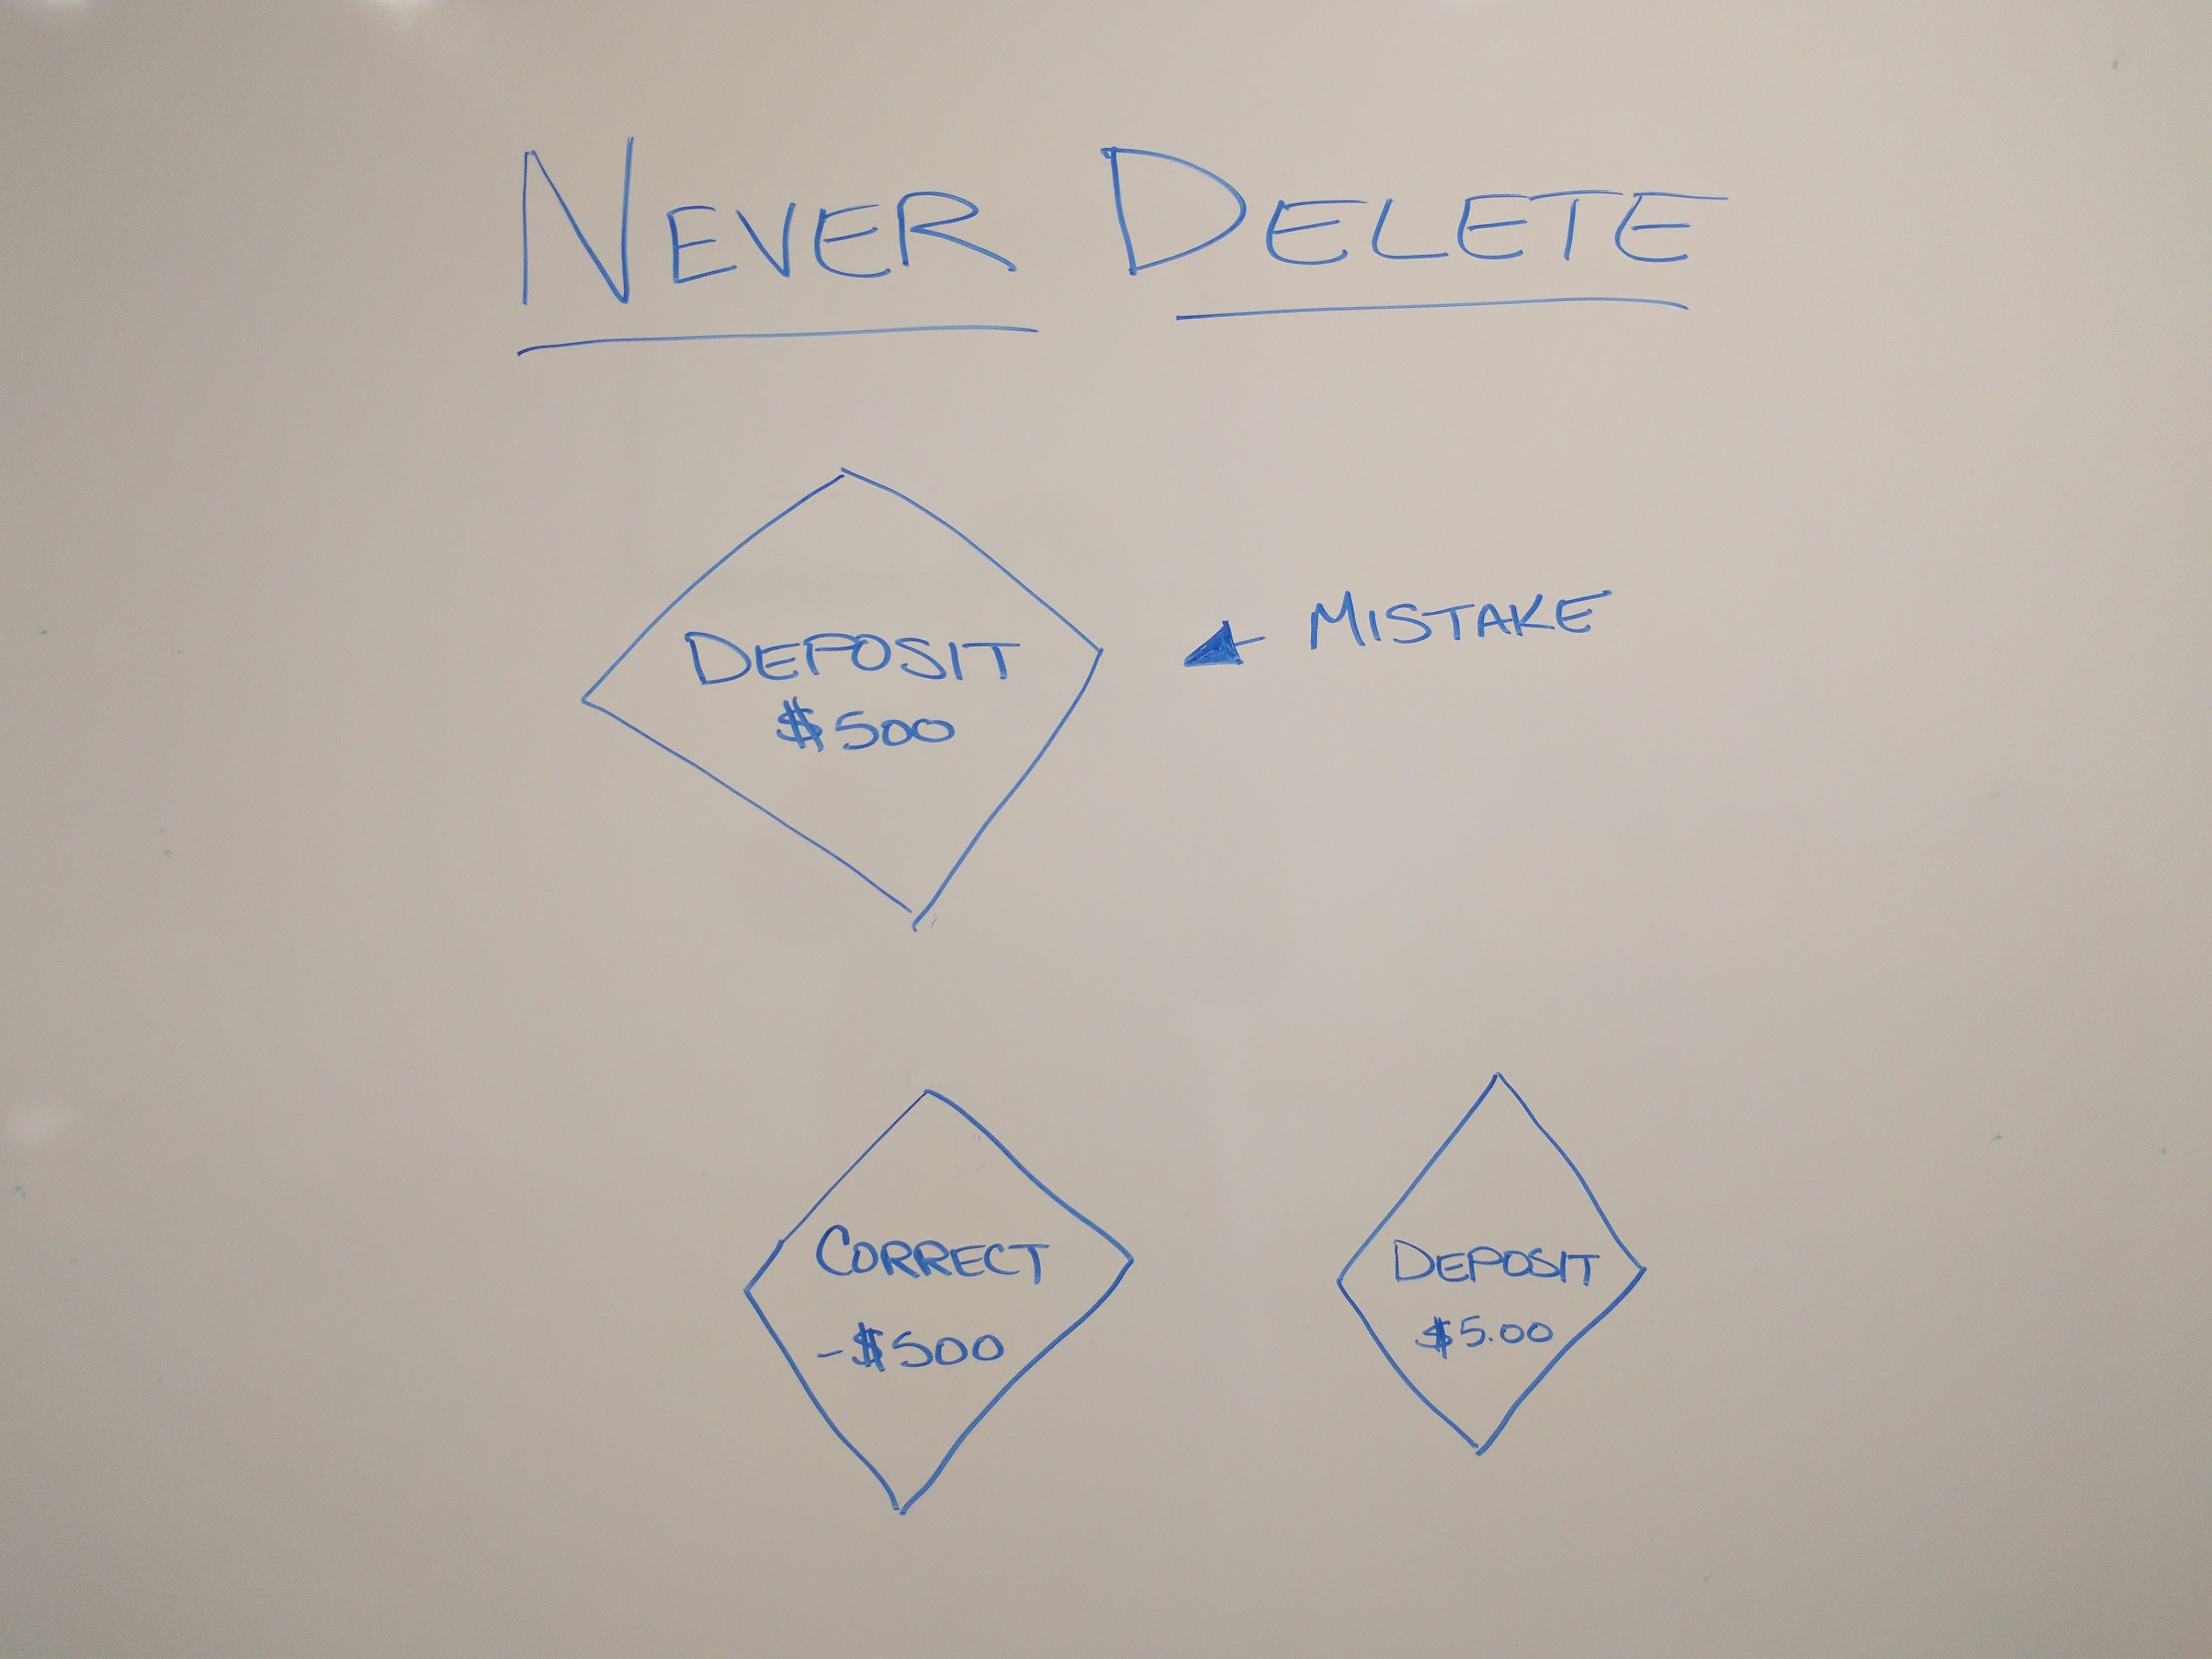 NEVER DELETE
DEPOSIT
$500
MISTAKE
CORRECT
-$500
DEPOSIT
$5.00